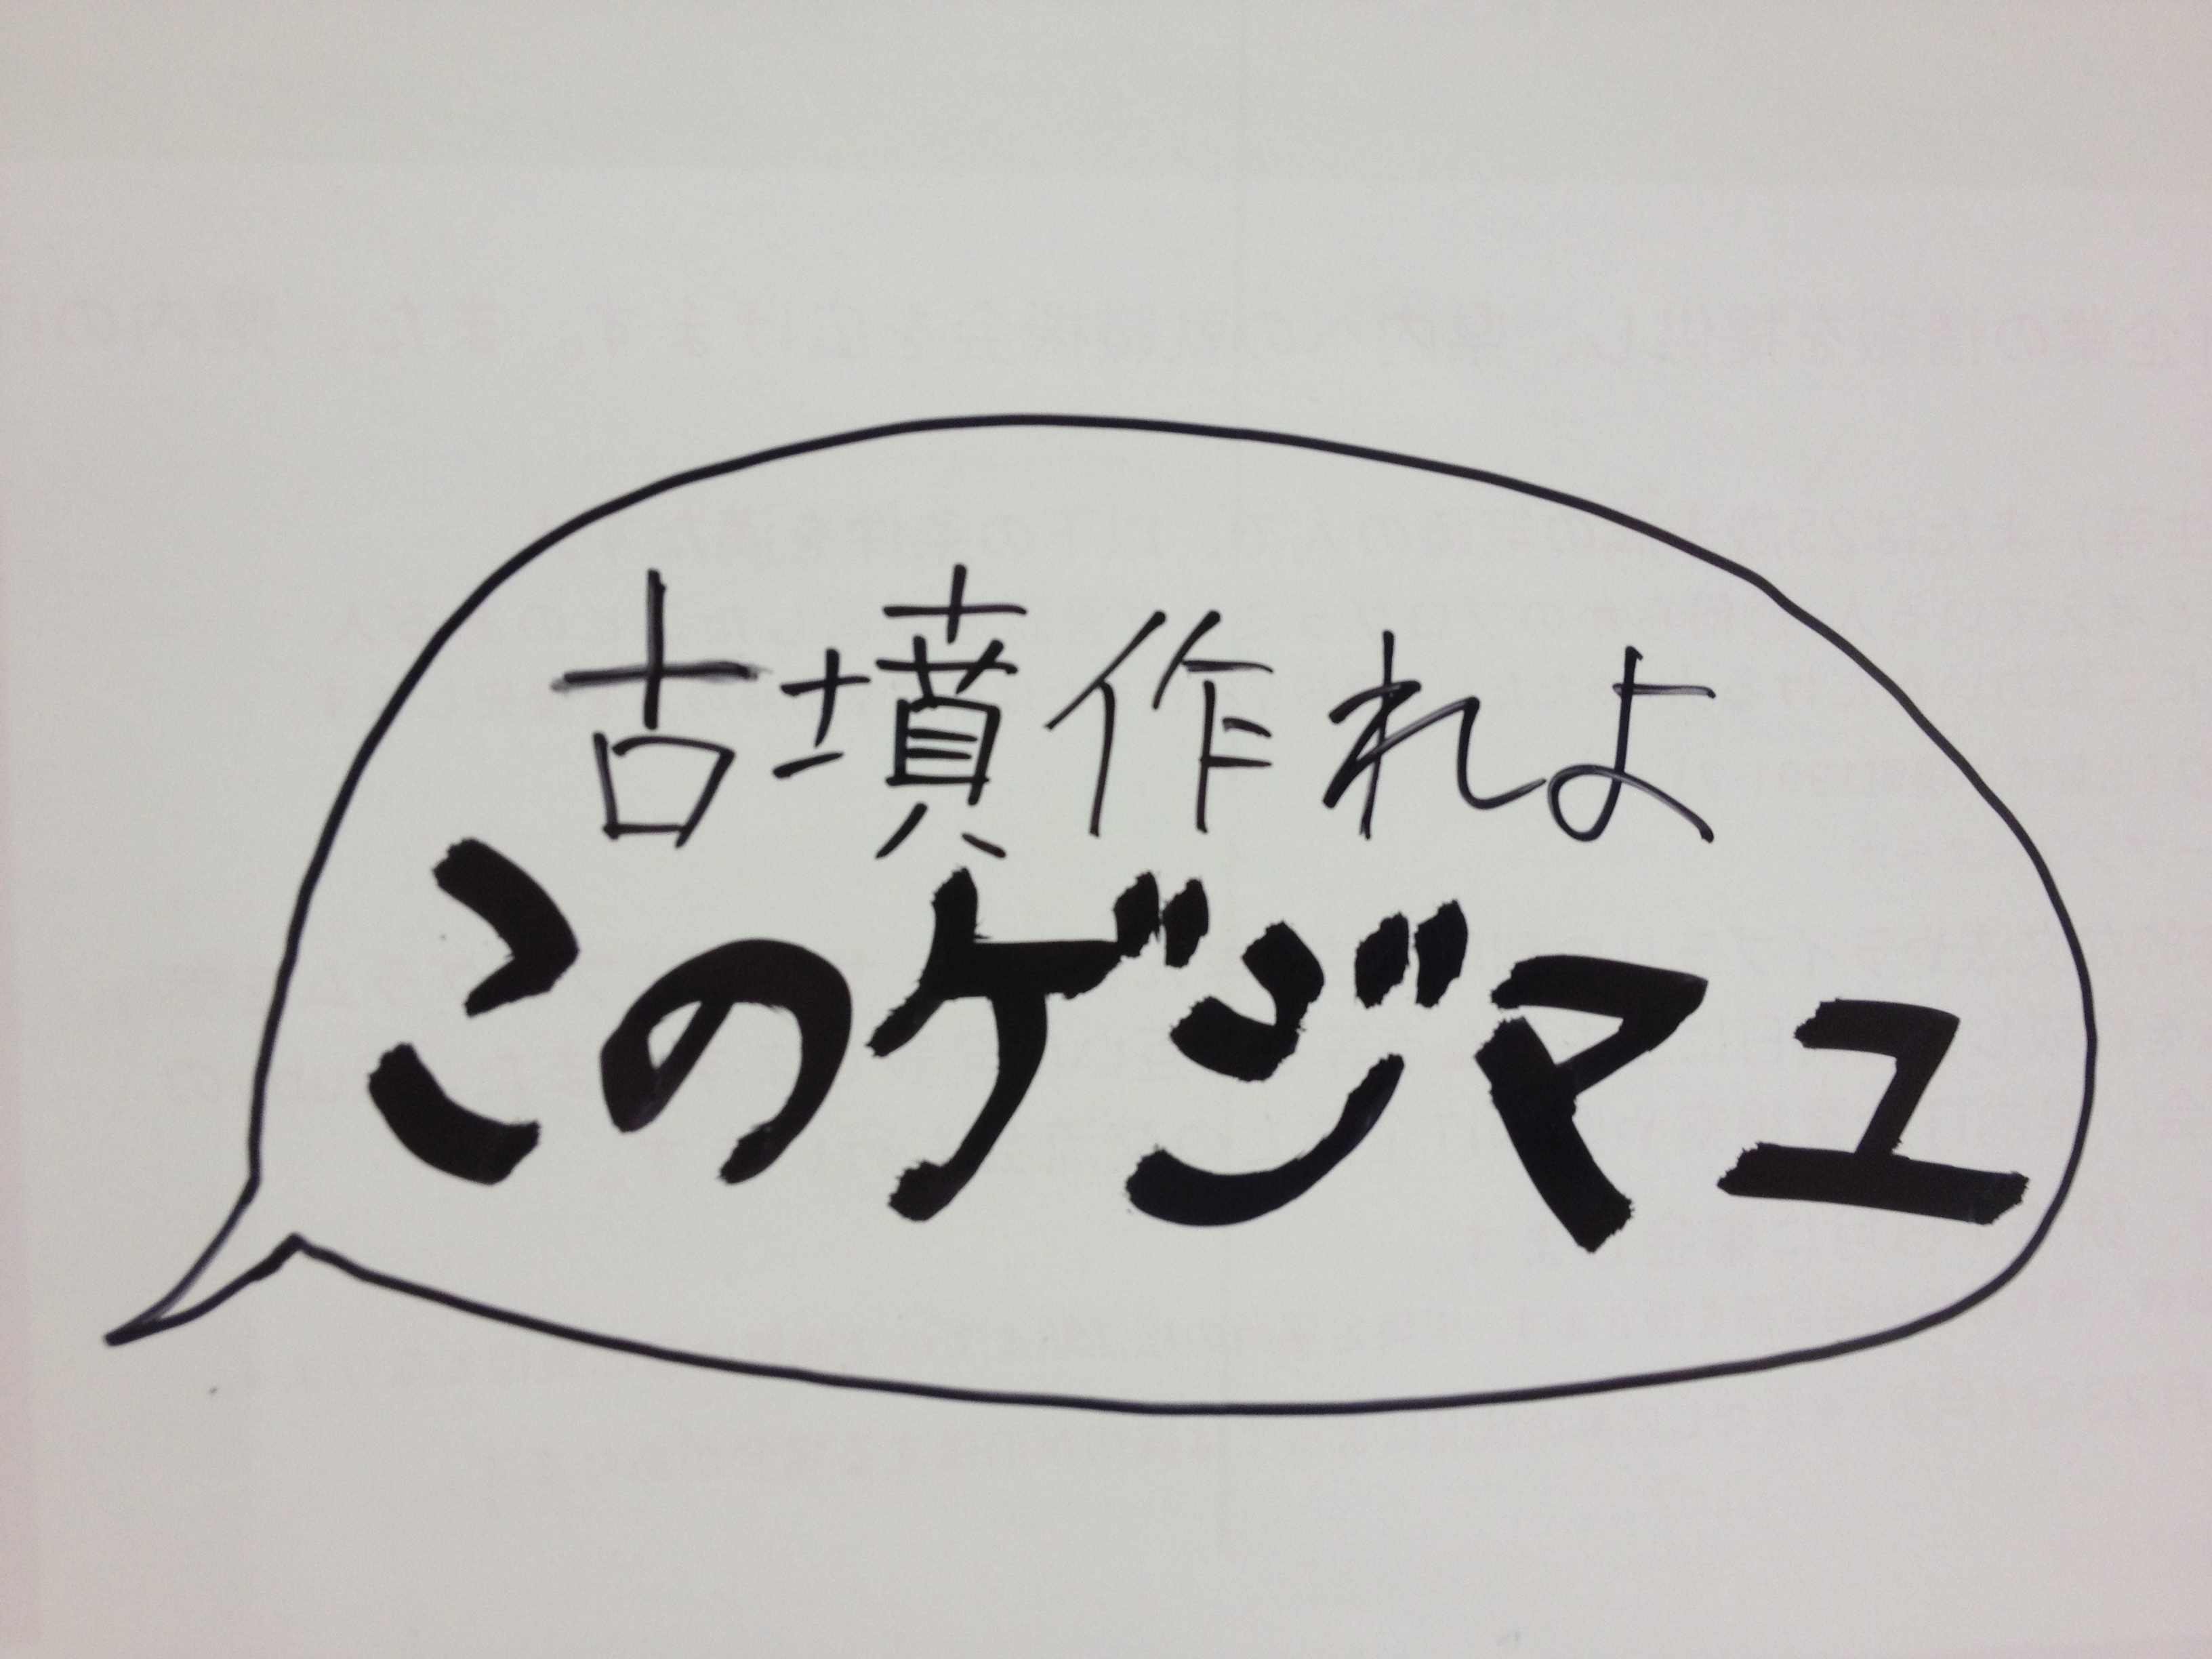 古墳作れよ
このゲジマユ